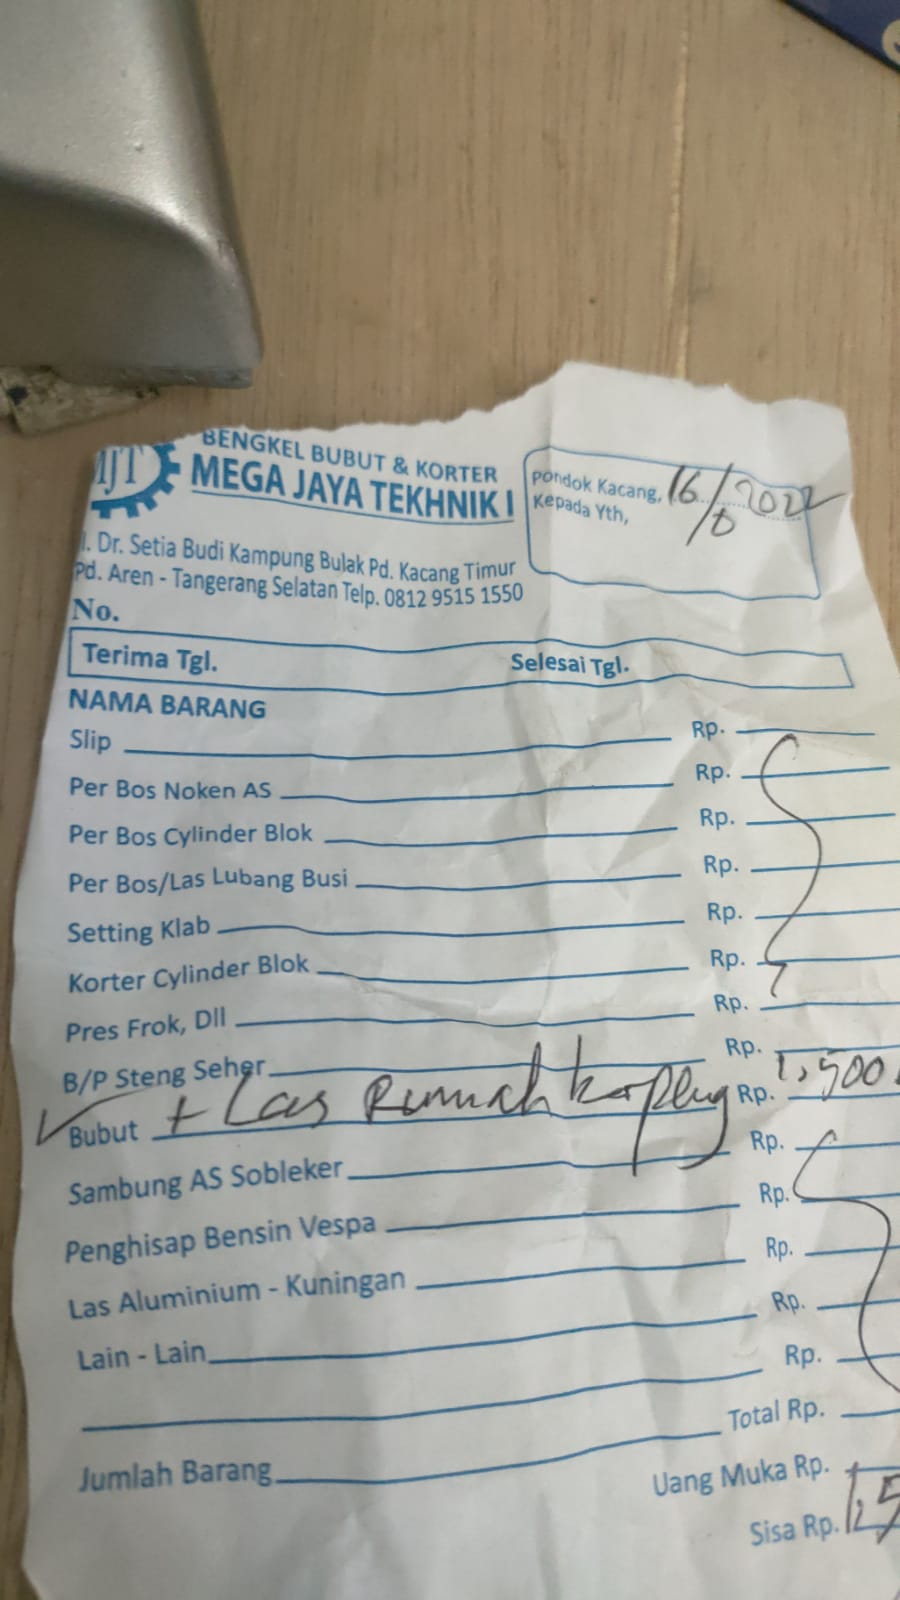 MJT
BENGKEL BUBUT & KORTER
MEGA JAYA TEKHNIK I
l. Dr. Setia Budi Kampung Bulak Pd. Kacang Timur
Pd. Aren - Tangerang Selatan Telp. 0812 9515 1550
Pondok Kacang, 16/8 2022
Kepada Yth,
No.
Terima Tgl. Selesai Tgl.
NAMA BARANG
Slip Rp.
Per Bos Noken AS Rp.
Per Bos Cylinder Blok Rp.
Per Bos/Las Lubang Busi Rp.
Setting Klab Rp.
Korter Cylinder Blok Rp.
Pres Frok, Dll Rp.
B/P Steng Seher Rp.
Bubut + Las Rumah kopleng Rp. 1,500
Sambung AS Sobleker Rp.
Penghisap Bensin Vespa Rp.
Las Aluminium - Kuningan Rp.
Lain - Lain Rp.
Rp.
Jumlah Barang Total Rp.
Uang Muka Rp.
Sisa Rp. 1,5